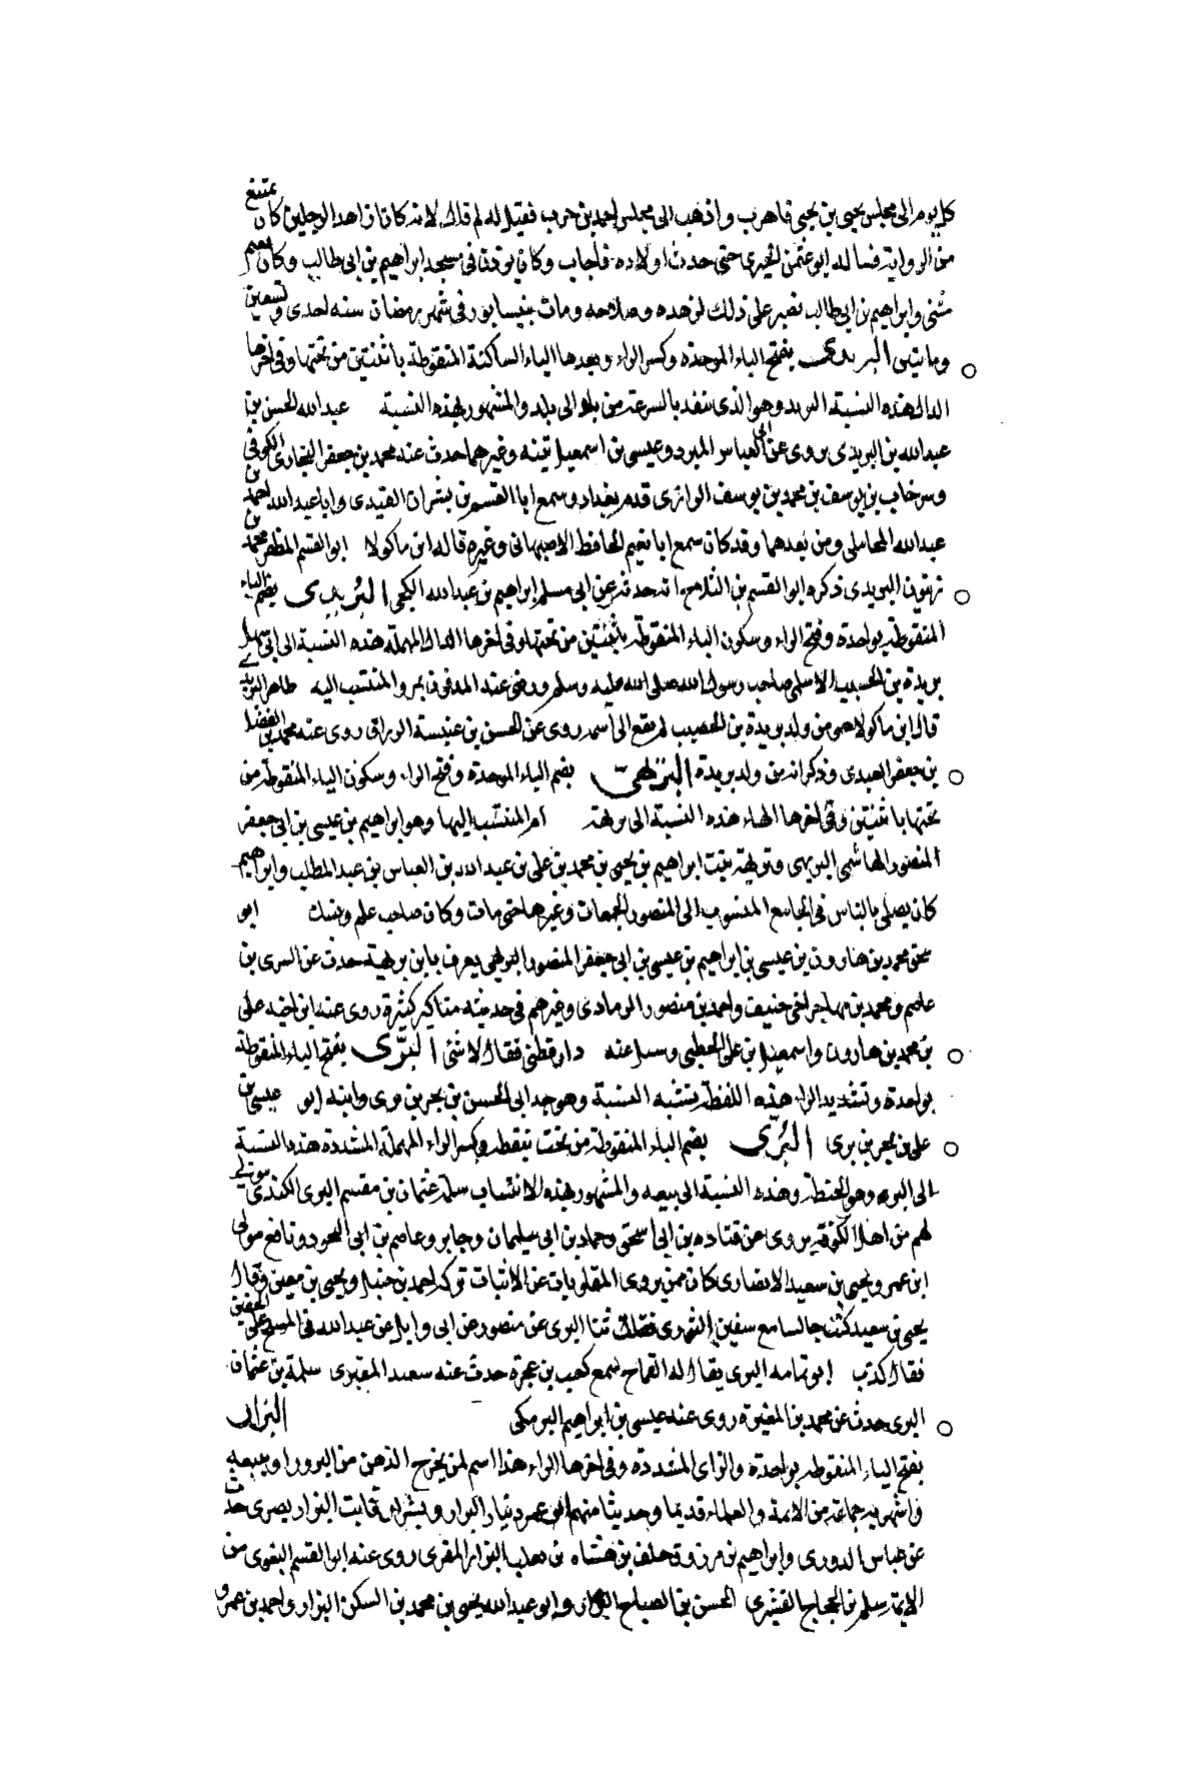 كل يوم الى مجلس يحيى بن يحيى فاهرب واذهب الى مجلس احمد بن حرب فقيل له لم قال لانه كان ازهد الرجلين كان يمتنع
من الرواية فساله ابو عثمن الحيرى حتى حدث اولاده فاجاب وكان يوذن فى مسجد ابراهيم بن ابى طالب وكان يقيم
مثنى وابراهيم بن ابى طالب يصبر على ذلك لزهده وصلاحه ومات بنيسابور فى شهر رمضان سنه احدى وتسعين
وماتين البريدى بفتح الباء الموحدة وكسر الراء وبعدها الياء الساكنة المنقوطة باثنتين من تحتها وفى اخرها
الدال هذه النسبة البريد وهو الذى ينفذ بالسرعة من بلد الى بلد والمشهور بهذه النسبة عبد الله الحسن بن
عبد الله بن البريدى يروى عن ابى العباس المبرد وعيسى بن اسمعيل تينه وغيرهما حدث عنه محمد بن جعفر النجارى الكوفى
وسرخاب بن يوسف بن محمد بن يوسف الرازى قدم بغداد وسمع ابا القسم بن بشران القيدى وابا عبد الله احمد بن
عبد الله المحاملى ومن بعدهما وقد كان سمع ابا نعيم الحافظ الاصبهانى وغيره قاله ابن ماكولا ابو القسم المظفر محمد بن
زيتون البريدى ذكره ابو القسم بن الثلاج انه حدثه عن ابى مسلم ابراهيم بن عبد الله الكجى البُرَيدى بضم الباء
المنقوطة بواحدة وفتح الراء وسكون الياء المنقوطة باثنتين من تحتها وفى اخرها الدال المهملة هذه النسبة الى ابى سهل
بريدة بن الحصيب الاسلمى صاحب رسول الله صلى الله عليه وسلم ورضى عنه المدفون بمرو والمنتسب اليه طاهر البريدى
قال ابن ماكولا هو من ولد بريدة بن الحصيب لم يقع الى اسمه روى عن الحسن بن عنبسة الوراق روى عنه محمد بن الفضل
بن جعفر العبدى وذكر انه من ولد بريدة البُرَيهى بضم الباء الموحدة وفتح الراء وسكون الياء المنقوطة من
تحتها باثنتين وفى اخرها الهاء هذه النسبة الى بريهة ام المنتسب اليها وهو ابراهيم بن عيسى بن ابى جعفر
المنصور الهاشمى البريهى وبريهة بنت ابراهيم بن يحيى بن محمد بن على بن عبد الله بن العباس بن عبد المطلب وابراهيم
كان يصلى بالناس فى الجامع المنسوب الى المنصور الجمعات وغيرها حتى مات وكان صاحب علم ونسك ابو
سحق محمد بن هارون بن عيسى بن ابراهيم بن عيسى بن ابى جعفر المنصور البريهى يعرف بابن بريهة حدث عن السرى بن
عاصم ومحمد بن مهاجر اخى حنيف واحمد بن منصور الرمادى وغيرهم فى حديثه مناكير كثيرة روى عنه ابن اخيه على
بن محمد بن هارون واسمعيل بن على الخطبى وسيل عنه دارقطنى فقال لا شئ البَرّى بفتح الباء المنقوطة
بواحدة وتشديد الراء هذه اللفظة تشبه النسبة وهو جد ابى الحسن بن بحر بن برى وابنه ابو عيسى بن
على بن بحر بن برى البُرّى بضم الباء المنقوطة من تحت بنقطة وكسر الراء المهملة المشددة هذه النسبة
الى البر وهو الحنطة وهذه النسبة الى بيعه والمشهور بهذه الانتساب سلمة عثمان بن مقسم البرى الكندى مولى
لهم من اهل الكوفة يروى عن قتاده بن ابى اسحق وحماد بن ابى سليمان وجابر وعاصم بن ابى النجود ونافع مولى
ابن عمر ويحيى بن سعيد الانصارى كان ممن يروى المقلوبات عن الاثبات تركه احمد بن حنبل ويحيى بن معين وقال
يحيى بن سعيد كنت جالسا مع سفين الثورى فقال ثنا البرى عن منصور عن ابى وايل عن عبد الله فى المسح على الخفين
فقال كذب ابو ثمامه البرى يقال له القماح سمع كعب بن عجرة حدث عنه سعيد المقبرى سلمة بن عثمان
البرى حدث عن محمد بن المغيرة روى عنه عيسى بن ابراهيم البرمكى البزار
بفتح الباء المنقوطه بواحدة والزاى المشددة وفى اخرها الراء هذا اسم لمن يخرج الدهن من البزور او يبيعه
واشهر به جماعة من الايمة والعلماء قديما وحديثا منهم ابو عمر دينار البزار وبشر بن ثابت البزار بصرى حدث
عن عباس الدورى وابراهيم بن مرزوق خلف بن هشام بن البزار المقرى روى عنه ابو القسم البغوى من
الايمة مسلم بن الحجاج القشيرى الحسن بن الصباح البزار وابو عبد الله يحيى بن محمد بن السكن البزار واحمد بن عمرو